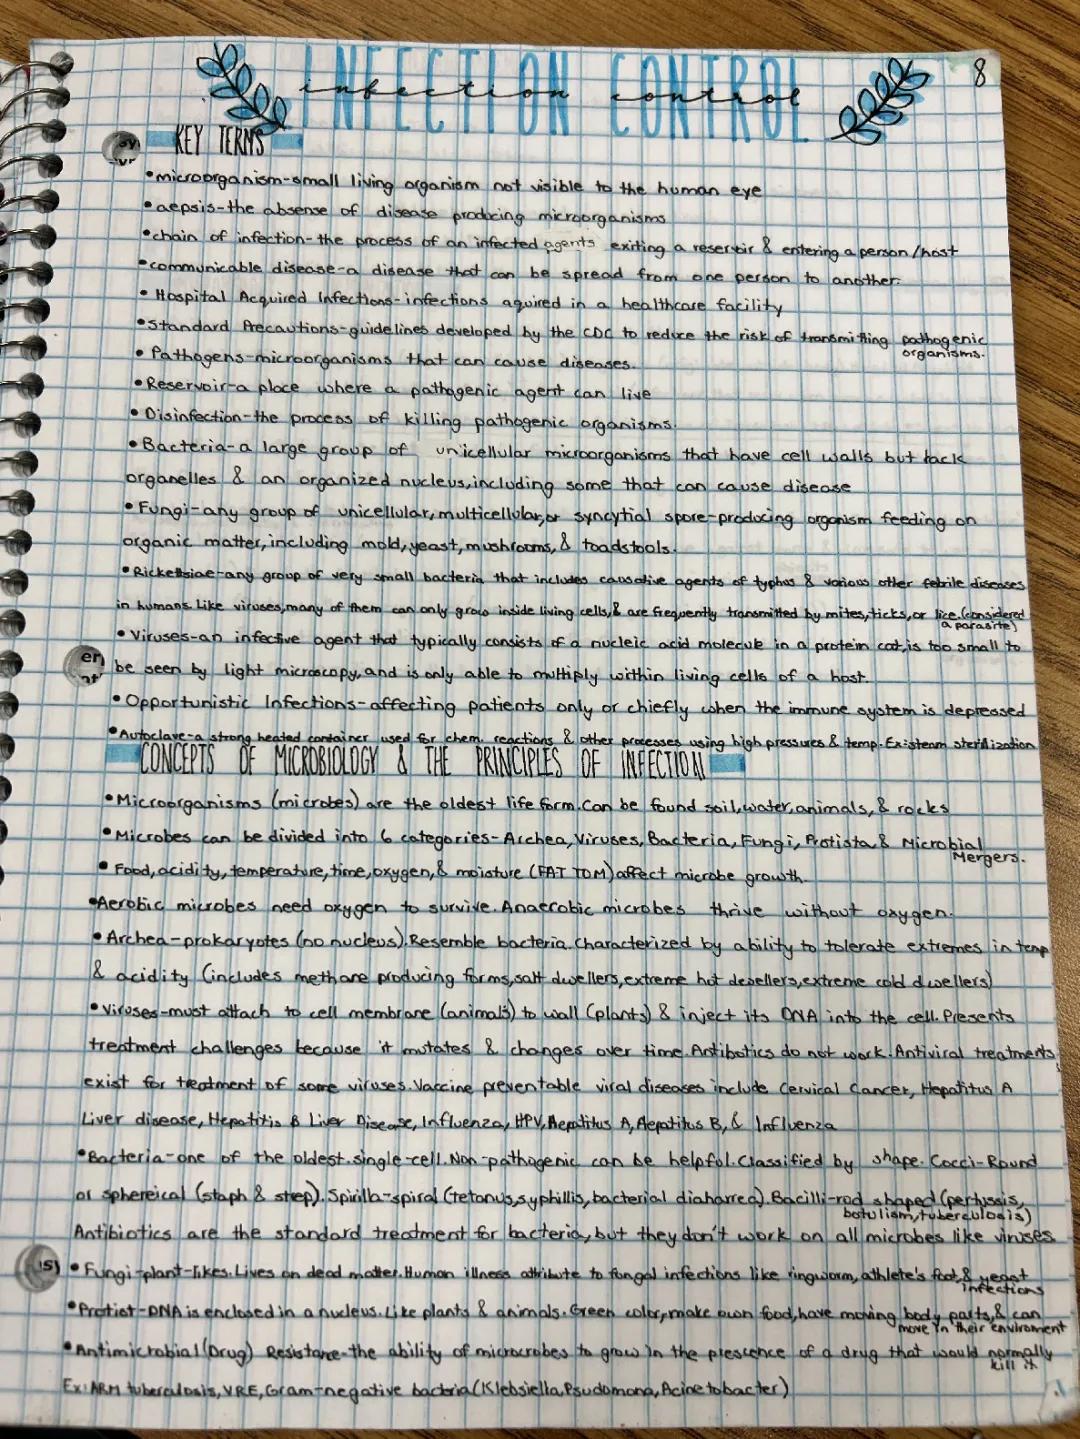 INFECTION CONTROL
infection control
8
KEY TERMS
•microorganism-small living organism not visible to the human eye
•aepsis-the absense of disease producing microorganisms
•chain of infection-the process of an infected agents exiting a reservoir & entering a person/host
•communicable disease-a disease that can be spread from one person to another.
•Hospital Acquired Infections-infections aquired in a healthcare facility
•Standard Precautions-guidelines developed by the CDC to reduce the risk of transmitting pathogenic
organisms.
•Pathogens-microorganisms that can cause diseases.
•Reservoir-a place where a pathogenic agent can live
•Disinfection-the process of killing pathogenic organisms.
•Bacteria-a large group of unicellular microorganisms that have cell walls but lack
organelles & an organized nucleus, including some that can cause disease
•Fungi-any group of unicellular, multicellular, or syncytial spore-producing organism feeding on
organic matter, including mold, yeast, mushrooms, & toadstools.
•Rickettsiae-any group of very small bacteria that includes causative agents of typhus & various other febrile diseases
in humans. Like viruses, many of them can only grow inside living cells, & are frequently transmitted by mites, ticks, or lice. (considered
a parasite)
•Viruses-an infective agent that typically consists of a nucleic acid molecule in a protein coat, is too small to
be seen by light microscopy, and is only able to multiply within living cells of a host.
•Opportunistic Infections-affecting patients only or chiefly when the immune system is depressed
•Autoclave-a strong heated container used for chem. reactions & other processes using high pressures & temp. Ex: steam sterilization
CONCEPTS OF MICROBIOLOGY & THE PRINCIPLES OF INFECTION
•Microorganisms (microbes) are the oldest life form. Can be found soil, water, animals, & rocks
•Microbes can be divided into 6 categories-Archea, Viruses, Bacteria, Fungi, Protista, & Microbial
Mergers.
•Food, acidity, temperature, time, oxygen, & moisture (FAT TOM) affect microbe growth.
•Aerobic microbes need oxygen to survive. Anaerobic microbes thrive without oxygen.
•Archea-prokaryotes (no nucleus). Resemble bacteria. Characterized by ability to tolerate extremes in temp
& acidity (includes methane producing forms, salt dwellers, extreme hot dewellers, extreme cold dwellers)
•Viruses-must attach to cell membrane (animals) to wall (plants) & inject its DNA into the cell. Presents
treatment challenges because it mutates & changes over time. Antibotics do not work. Antiviral treatments
exist for treatment of some viruses. Vaccine preventable viral diseases include Cervical Cancer, Hepatitus A
Liver disease, Hepatitis B Liver Disease, Influenza, HPV, Hepatitus A, Hepatitus B, & Influenza
•Bacteria-one of the oldest. single-cell. Non-pathogenic can be helpful. Classified by shape. Cocci-Round
or sphereical (staph & strep). Spirilla-spiral (tetanus, syphillis, bacterial diaharrea). Bacilli-rod shaped (pertussis,
botulism, tuberculosis)
Antibiotics are the standard treatment for bacteria, but they don't work on all microbes like viruses
•Fungi-plant-likes. Lives on dead matter. Human illness attribute to fungal infections like ringworm, athlete's foot, & yeast
infections
•Protist-DNA is enclosed in a nucleus. Like plants & animals. Green color, make own food, have moving body parts, & can
move in their enviroment
•Antimicrobial (Drug) Resistance-the ability of microcrobes to grow in the prescence of a drug that would normally
kill it
Ex: ARM tuberculosis, VRE, Gram-negative bactria (Klebsiella, Psudomona, Acinetobacter)